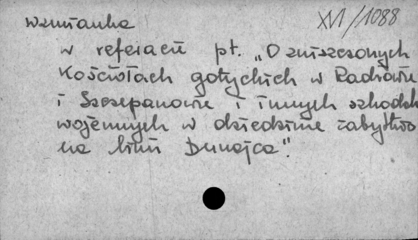 wzmianka
XVI/1088
w referacie pt. "O zniszczonych
Kościołach gotyckich w Radłowie
i Szczepanowie i innych szkodach
wojennych w dziedzinie zabytków
na linii Dunajca".